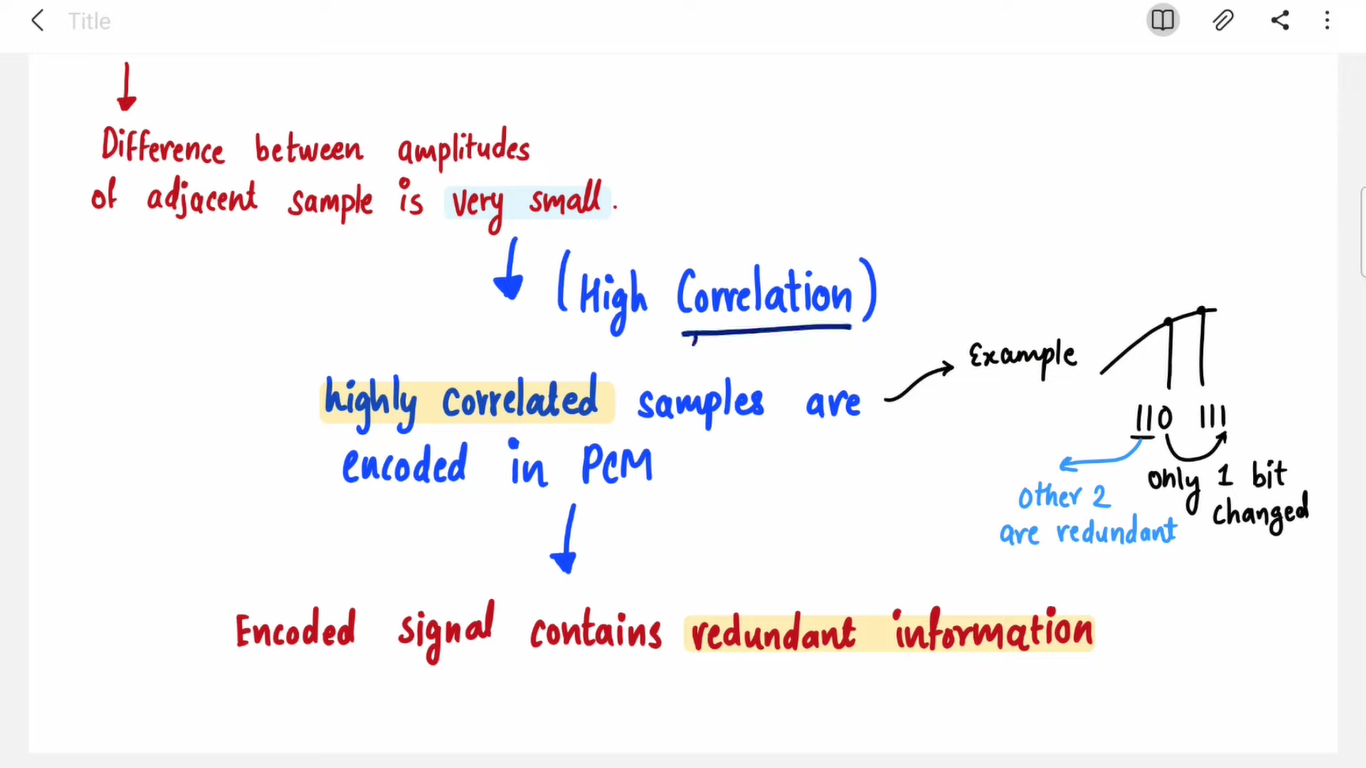 Title
Difference between amplitudes
of adjacent sample is very small.
(High Correlation)
Example
highly correlated samples are
encoded in PCM
110 111
only 1 bit
changed
other 2
are redundant
Encoded signal contains redundant information